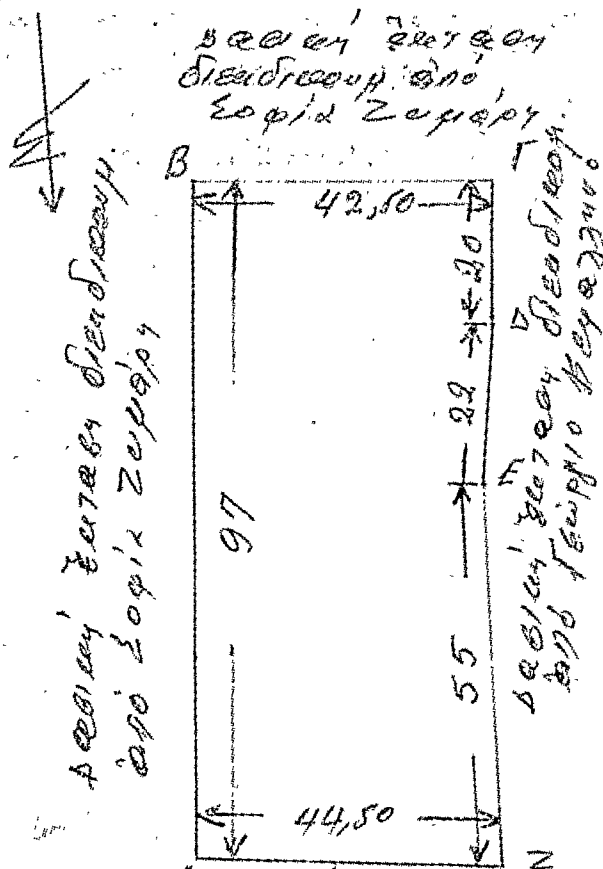 δασική έκταση
διεκδικουμ. από
Σοφία Ζυμάρη
B
Γ
42,50
20
Δ
22
E
97
55
44,50
Z
δασική έκταση διεκδικουμ.
από Σοφία Ζυμάρη
δασική έκταση διεκδικουμ.
από Γεώργιο